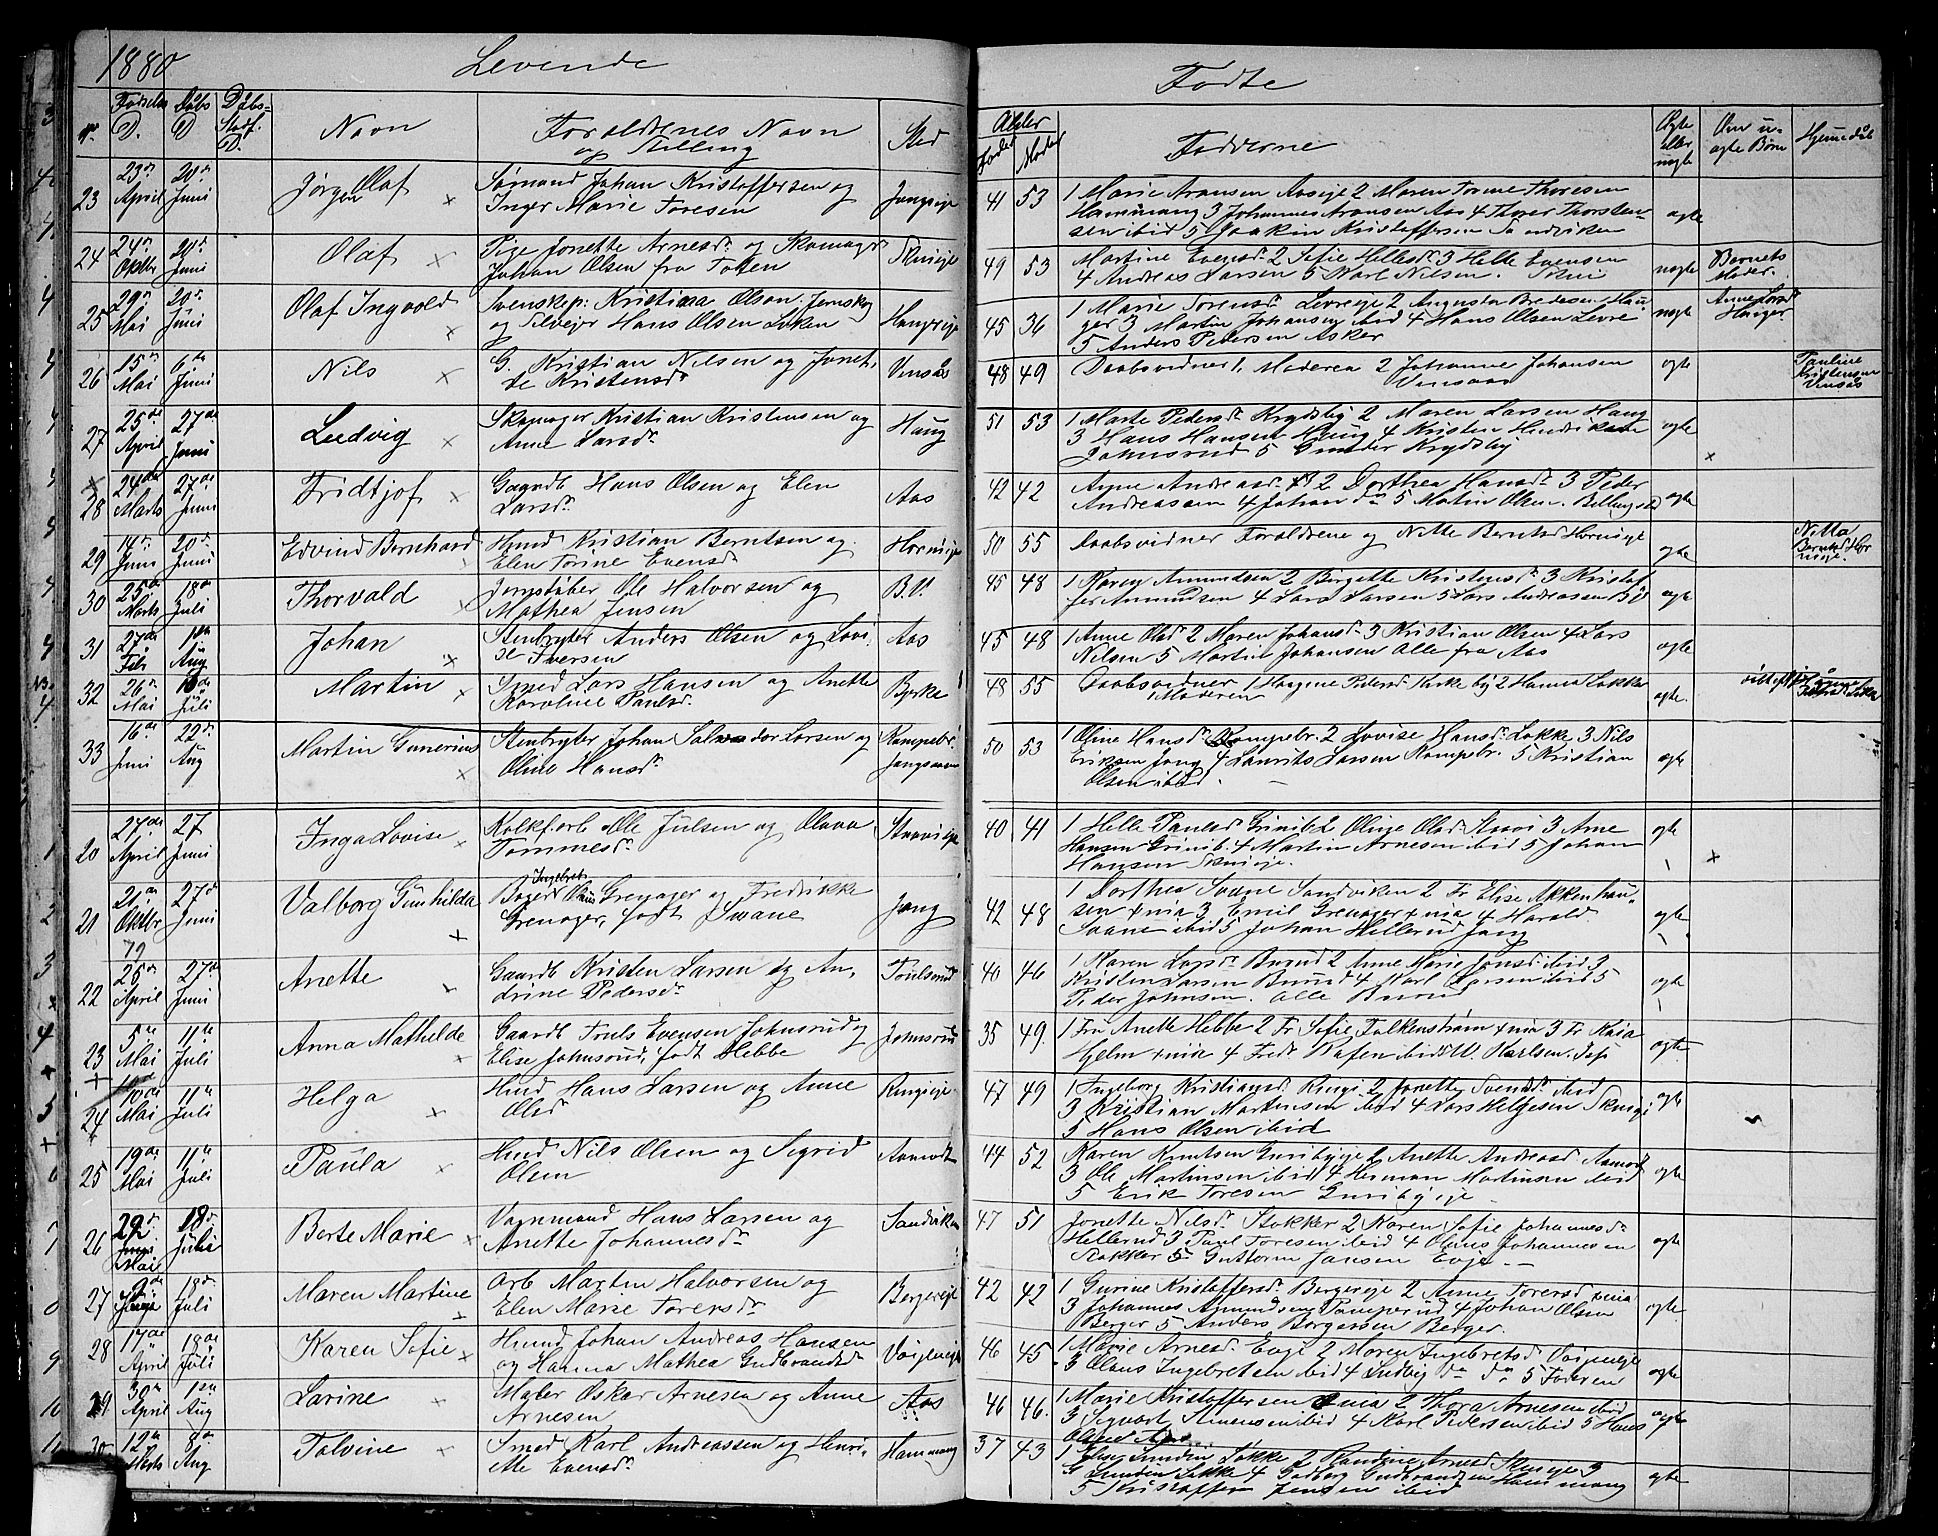 1880 Levende Födte
No. Födsels D. Dåbs D Dåbs- Stadf. D. Navn Foraldrenes Navn og Stilling Sted Alder Fader Moder Fadderne Ægte eller uægte Om u- ægte Börn Hjemmedåb
23 23de April 20de Juni Jörgen Olaf Sömand Johan Kristoffersen og
Inger Marie Toresen Jongseje 41 53 1 Marie Aronsen Aaseje 2 Maren Torine Thoresen
Hammang 3 Johannes Aronsen Aas 4 Thorer Thorsten-
sen ibid 5 Joakim Kristoffersen Sandviken ægte
24 24de Oktbr 20de Juni Olaf Pige Jonette Arnesdr og Skomagr
Johan Olsen fra Toten 49 53 Martine Evensdr 2 Sofie Hellesdr 3 Helle Evensen
4 Andreas Larsen 5 Karl Nilsen uægte Barnets Moder.
25 29de Mai 20de Juni Olaf Ingvold Svenskep: Kristina Olson
og Hans Olsen Löken 45 36 1 Marie Torensdr Levreeje 2 Augusta Bredesen Hau-
ger 3 Martin Johansen ibid 4 Hans Olsen Levre
5 Anders Pedersen Asker uægte Anne Larsdr Hauger
26 15de Mai 6te Juni Nils G. Kristian Nilsen og Jonet-
te Kristensdr Vensås 48 49 Daabsvidner 1, Moderen 2 Johanne Johansen
Vensaas ægte Pauline Kristensen Vensås
27 25de April 27de Juni Ludvig Skomager Kristian Kristensen og
Anne Larsdr Haug 51 53 1 Marte Pedersdr Krydsby 2 Maren Larsen Haug
3 Hans Hansen Haug 4 Kristen Hendriksen
Johnsrud 5 Gunder Krydsby ægte
28 24de Marts 27de Juni Fridtjof Gaardb Hans Olsen og Elen
Larsdr Aas 42 42 Anne Andreasdr 2 Dorthea Hansdr 3 Peder
Andreassen 4 Johan do 5 Martin Olsen. Billingstad ægte
29 14de Juni 20de Juni Edvind Bernhard Husmd Kristian Berntsen og
Elen Torine Evensdr Hornieje 50 55 Daabsvidner Foraldrene og Nitte Berntsd Hornieje ægte Nitta Berntsd Hornieje.
30 25de Marts 18de Juli Thorvald Jernstöber Ole Halvorsen og
Mathea Jensen B.V. 45 48 1 Karen Amundsen 2 Birgette Kristensdr 3 Kristof-
fer Amundsen 4 Lars Larsen 5 Lars Andreassen BV ægte
31 27de Feb 1ste Aug Johan Stenbryter Anders Olsen og Lovi-
se Iversen Aas 45 48 1 Anne Olsd 2 Maren Johansdr 3 Kristian Olsen 4 Lars
Nilsen 5 Martin Johansen Alle fra Aas ægte
32 26de Mai Juli Martin Smed Lars Hansen og Anette
Karoline Paulsdr Bjerke 48 55 Daabsvidner 1 Haagine Pedersdr Kirkeby 2 Hanna Løkke
Moderen ægte
33 16de Juni 29de Aug Martin Gunerius Stenbryter Johan Salvador Larsen og
Oline Hansdr Kampebr. Jongsaasen 50 53 1 Oline Hansdr Kampebr. 2 Lovise Hansdr Løkke 3 Nils
Eriksen Jong 4 Laurits Larsen Kampebr. 5 Kristian
Olsen ibid. ægte
20 27de April 27 Juni Inga Lovise Kalkfarb Ole Julsen og Olava
Tommesdr 40 41 1 Helle Paulsd Grinib. 2 Oline Olsd Staavi 3 Arne
Hansen Grinib. 4 Martin Arnesen ibid 5 Johan
Hansen Skuieje. ægte
21 21de Oktbr 79 27de Juni Valborg Gunhilda Bager Ingebret Olaus Grenager og Fredrikke
Grenager, födt Svane Jong 42 48 1 Dorthea Svane Sandviken 2 Fr Elise Akkenhau-
sen Xnia 3 Emil Grenager Xnia 4 Harald
Svane ibid 5 Johan Hellerud Jong ægte
22 25de April 27de Juni Anette Gaardb Kristen Larsen og An-
drine Pedersdr 40 46 1 Karen Larsdr Burud 2 Anne Marie Jonsd ibid 3
Kristen Larsen Burud 4 Karl Larsen ibid 5
Peder Johnsen. Alle Burud ægte
23 5te Mai 11te Juli Anna Mathilde Gaardb Truls Evensen Johnsrud og
Elise Johnsrud, födt Hebbe Johnsrud 35 49 1 Fru Anette Hebbe 2 Fr Sofie Falkenström Xnia 3 Fr Kaia
Hjelm Xnia 4 Fredr Rafen ibid 5 W. Karlsen. ægte
24 10de Mai 11te Juli Helga Husmd Hans Larsen og Anne
Olsd Ringieje 47 49 1 Ingeborg Kristiansd Ringi 2 Jonette Svendsdr ibid
3 Kristian Martinsen ibid 4 Lars Helgesen Skuieje
5 Hans Olsen ibid ægte
25 19de Mai 11te Juli Paula Husmd Nils Olsen og Sigrid
Olsen Aamodt 44 52 Karen Knutsen Guribyeje 2 Anette Andreasd Aamodt
3 Ole Martinsen ibid 4 Herman Martinsen ibid
5 Erik Toresen Guribyeje ægte
26 29de Mai 18de Juli Berte Marie Vognmand Hans Larsen og
Anette Johannesdr Sandviken 47 51 Jonette Nilsdr Stokker 2 Karen Sofie Johannesdr
Hellerud 3 Paul Toresen ibid 4 Olaus Johannesen
Stokker 5 Guttorm Jansen Evje ægte
27 18de Juli Maren Martine Arb Martin Halvorsen og
Elen Marie Torersdr Bergereje 42 42 1 Gurine Kristoffersdr Bergereje 2 Anne Torersd Xnia
3 Johannes Asmundsen Tamperud 4 Johan Olsen
Berger 5 Anders Borgersen Berger. ægte
28 17de April 18de Juli Karen Sofie Husmd Johan Andreas Hansen
og Hanna Mathea Gudbrandsd 46 45 1 Marie Arnesd Evje 2 Maren Ingebretsd
3 Olaus Ingebretsen ibid 4 Ludvig do do 5 Faderen ægte
29 30de April 1ste Aug Larine Maler Oskar Arnesen og Anne
Arnesen Aas 46 46 1 Marie Kristoffersen Xnia 2 Thora Arnesen ibid
3 Sigvart Simensen ibid 4 Karl Pedersen ibid 5 Hans
ægte
30 12te Marts 8de Aug Tolvine Smed Karl Andreassen og Henri-
ette Evensdr Hammang 37 43 1 Elise Lundin Løkke 2 Randine Arnesd Skuieje 3
G Lundin Løkke 4 Gudbrandsen Hammang
5 Kristoffer Jensen ibid ægte